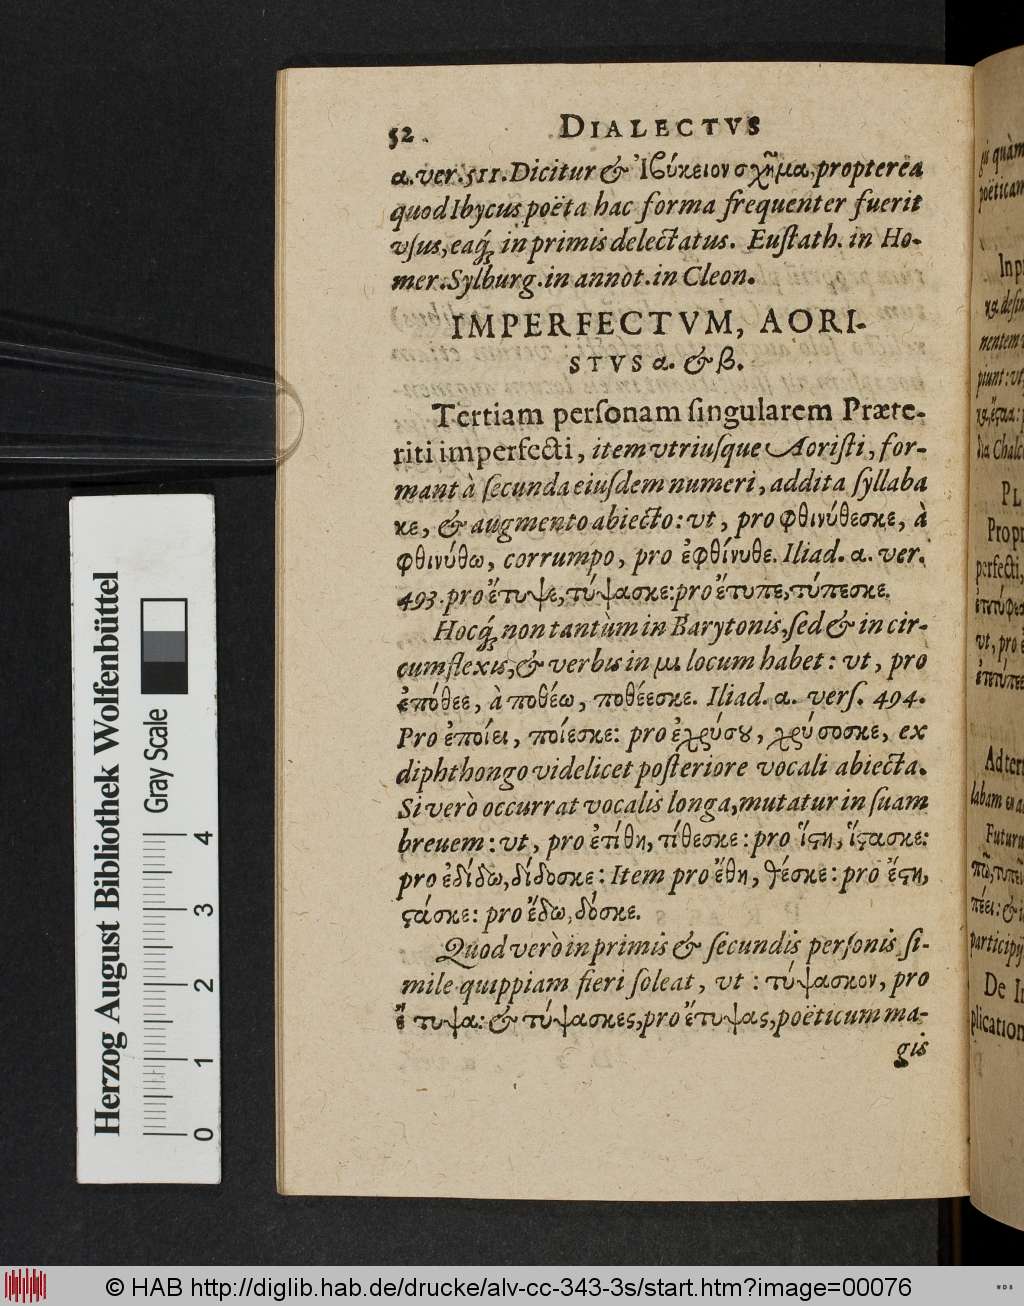 52. DIALECTVS
α. ver. 511. Dicitur & Ἰβύκειον σχῆμα, propterea
quod Ibycus poëta hac forma frequenter fuerit
vſus, eaq́; in primis delectatus. Euſtath. in Ho-
mer. Sylburg. in annot. in Cleon.
IMPERFECTVM, AORI-
STVS α. & β.
Tertiam perſonam ſingularem Præte-
riti imperfecti, item vtriuſque Aoriſti, for-
mant à ſecunda eiuſdem numeri, addita ſyllaba
κε, & augmento abiecto: vt, pro φθινύθεσκε, à
φθινύθω, corrumpo, pro ἐφθίνυθε. Iliad. α. ver.
493. pro ἔτυψε, τύψασκε: pro ἔτυπε, τύπεσκε.
Hocq́; non tantùm in Barytonis, ſed & in cir-
cumflexis, & verbis in μι locum habet: vt, pro
ἐπόθεε, à ποθέω, ποθέεσκε. Iliad. α. verſ. 494.
Pro ἐποίει, ποίεσκε: pro ἐχρύσου, χρύσοσκε, ex
diphthongo videlicet poſteriore vocali abiecta.
Si verò occurrat vocalis longa, mutatur in ſuam
breuem: vt, pro ἐτίθη, τίθεσκε: pro ἵστη, ἵστασκε:
pro ἐδίδω, δίδοσκε: Item pro ἔθη, θέσκε: pro ἔστη,
στάσκε: pro ἔδω, δόσκε.
Quod verò in primis & ſecundis perſonis ſi-
mile quippiam fieri ſoleat, vt: τύψασκον, pro
ἔτυψα: & τύψασκες, pro ἔτυψας, poëticum ma-
gis
Herzog August Bibliothek Wolfenbüttel
Gray Scale
0 1 2 3 4
ſis quàm
poëticam
In p
nentem
piunt: vt,
dia Chalc
PL
Pro pr
perfecti,
vt, pro
Ad ter
Futuru
participij
De In
plication
© HAB http://diglib.hab.de/drucke/alv-cc-343-3s/start.htm?image=00076